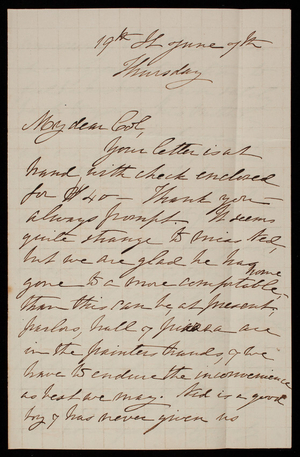 19th St June 7th
Thursday
My dear Col,
Your letter is at
hand, with check enclosed
for $40 – Thank you –
always prompt. It seems
quite strange to miss Ned,
but we are glad he has
gone to a more comfortable home
than this can be, at present,
parlors, hall & are
in the painters hands, & we
have to endure the inconvenience
as best we may. Ned is a good
boy & has never given us